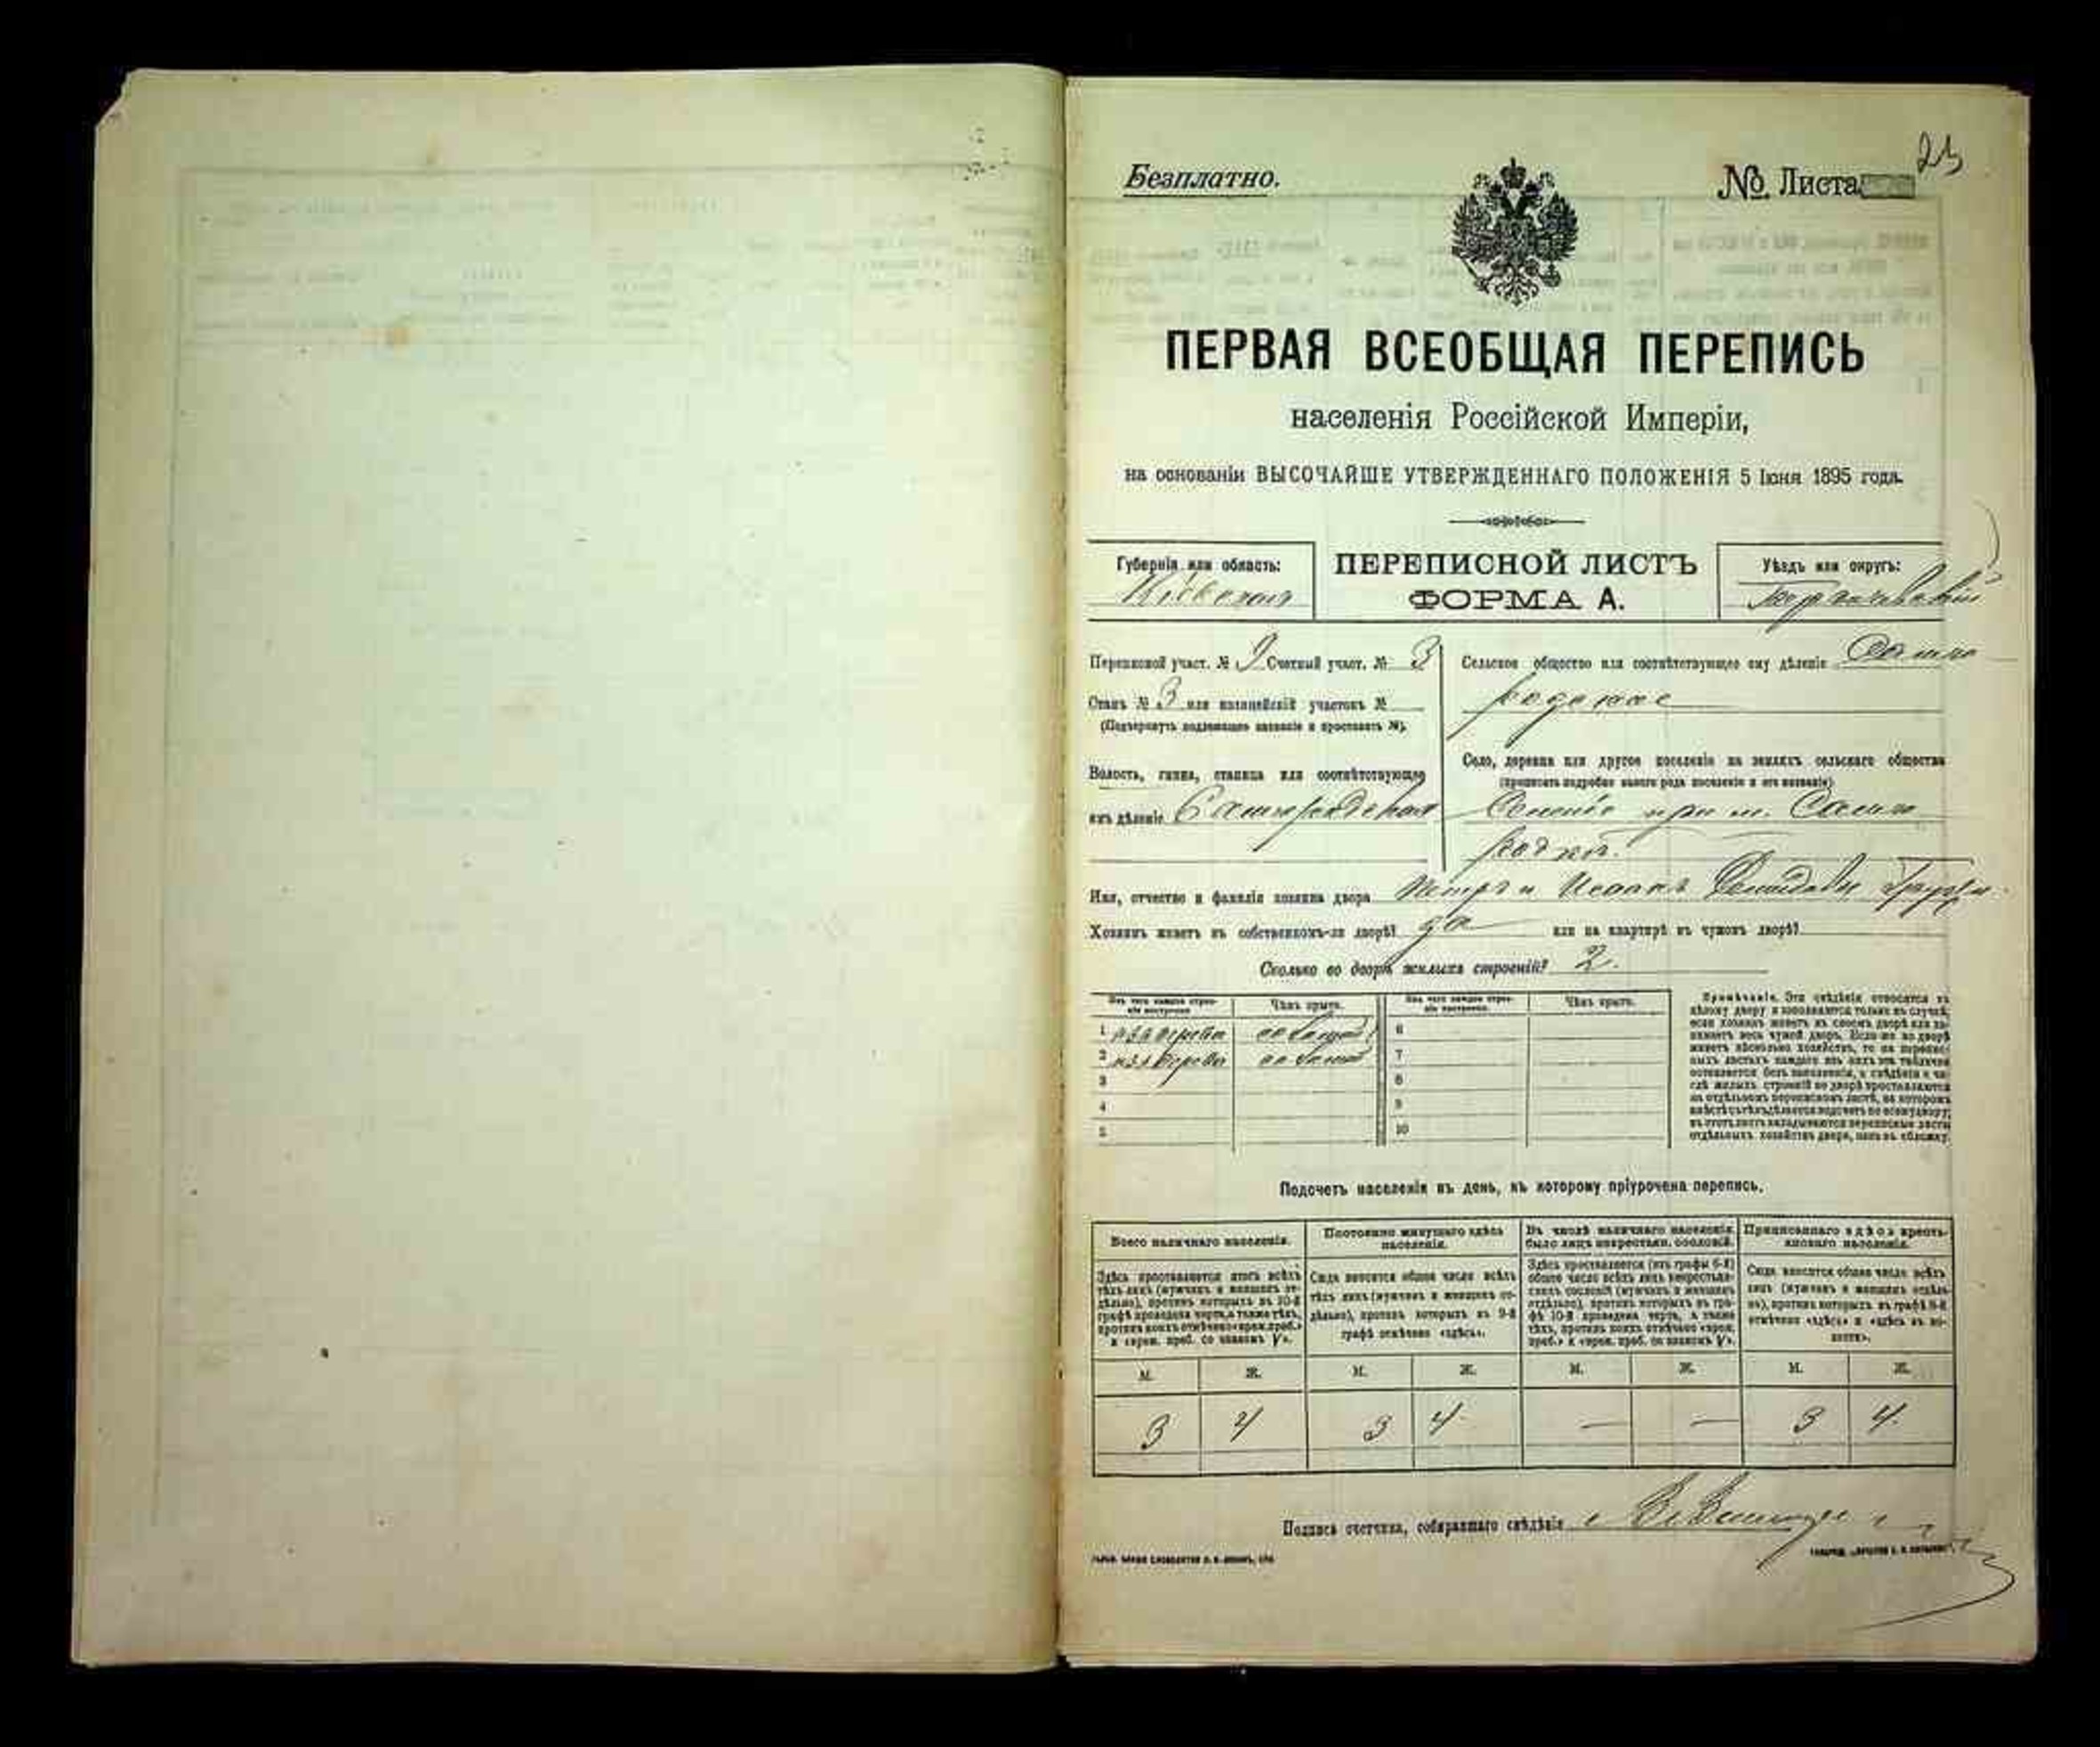 Безплатно.
№ Листа
23
ПЕРВАЯ ВСЕОБЩАЯ ПЕРЕПИСЬ
населенія Россійской Имперіи,
на основаніи ВЫСОЧАЙШЕ УТВЕРЖДЕННАГО ПОЛОЖЕНІЯ 5 Іюня 1895 года.
Губернія или область:
Кіевская
ПЕРЕПИСНОЙ ЛИСТЪ
ФОРМА А.
Уѣздъ или округъ:
Бердичевскій
Переписной участ. № 9 Счетный участ. № 3
Станъ № 3 или полицейскій участокъ №
(Подчеркнуть подлежащее названіе и проставить №).
Волость, гмина, станица или соотвѣтствующее
имъ дѣленіе Самгородская
Сельское общество или соотвѣтствующее ему дѣленіе Самго
родское
Село, деревня или другое поселеніе на земляхъ сельскаго общества
(прописать подробно какого рода поселеніе и его названіе)
при м. Самго
родкѣ.
Имя, отчество и фамилія хозяина двора Петръ и Исаакъ
Хозяинъ живетъ въ собственномъ-ли дворѣ? да или на квартирѣ въ чужомъ дворѣ?
Сколько во дворѣ жилыхъ строеній? 2.
Изъ чего каждое строеніе построено
Чѣмъ крыто.
Изъ чего каждое строеніе построено.
Чѣмъ крыто.
1 изъ дерева соломой 6
2 изъ дерева соломой 7
3 8
4 9
5 10
Примѣчаніе. Эти свѣдѣнія относятся къ
цѣлому двору и заполняются только въ случаѣ,
если хозяинъ живетъ въ своемъ дворѣ или за-
нимаетъ весь чужой дворъ. Если-же во дворѣ
живетъ нѣсколько хозяйствъ, то на перепис-
ныхъ листахъ каждаго изъ нихъ эта табличка
оставляется безъ заполненія, а свѣдѣнія о чи-
слѣ жилыхъ строеній во дворѣ проставляются
на отдѣльномъ переписномъ листѣ, на которомъ
вмѣстѣ съ тѣмъ дѣлается подсчетъ по всему двору;
въ этотъ листъ вкладываются переписные листы
отдѣльныхъ хозяйствъ двора, какъ въ обложку.
Подсчетъ населенія въ день, къ которому пріурочена перепись.
Всего наличнаго населенія.
Здѣсь проставляется итогъ всѣхъ
тѣхъ лицъ (мужчинъ и женщинъ от-
дѣльно), противъ которыхъ въ 10-й
графѣ проведена черта, а также тѣхъ,
противъ коихъ отмѣчено «врем. преб.»
и «врем. преб. со знакомъ V».
Постоянно живущаго здѣсь
населенія.
Сюда вносится общее число всѣхъ
тѣхъ лицъ (мужчинъ и женщинъ от-
дѣльно), противъ которыхъ въ 9-й
графѣ отмѣчено «здѣсь».
Въ числѣ наличнаго населенія
было лицъ некрестьян. сословій.
Здѣсь проставляется (изъ графы 6-й)
общее число всѣхъ лицъ некрестьян-
скихъ сословій (мужчинъ и женщинъ
отдѣльно), противъ которыхъ въ гра-
фѣ 10-й проведена черта, а также
тѣхъ, противъ коихъ отмѣчено «врем.
преб.» и «врем. преб. со знакомъ V».
Приписаннаго здѣсь кресть-
янскаго населенія.
Сюда вносится общее число всѣхъ
лицъ (мужчинъ и женщинъ отдѣль-
но), противъ которыхъ въ графѣ 8-й
отмѣчено «здѣсь» и «здѣсь въ во-
лости».
М. Ж. М. Ж. М. Ж. М. Ж.
3 4 3 4 — — 3 4.
Подпись счетчика, собиравшаго свѣдѣнія